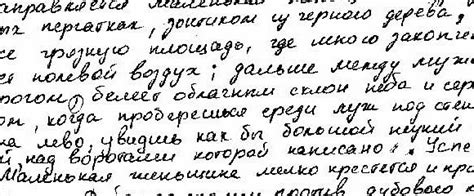 аправляется маленькая
ых перчатках, зонтиком из черного дерева,
се грязную площадь, где много закопч
ет полевой воздух; дальше между муж
рогом, белеет облачным склон неба и сер
ом, когда проберешься среди луж под стен
на лево, увидишь как бы большой плугий
й, над воротами которой написано: "Успе
Маленькая женщина мелко крестится и при
против дубового